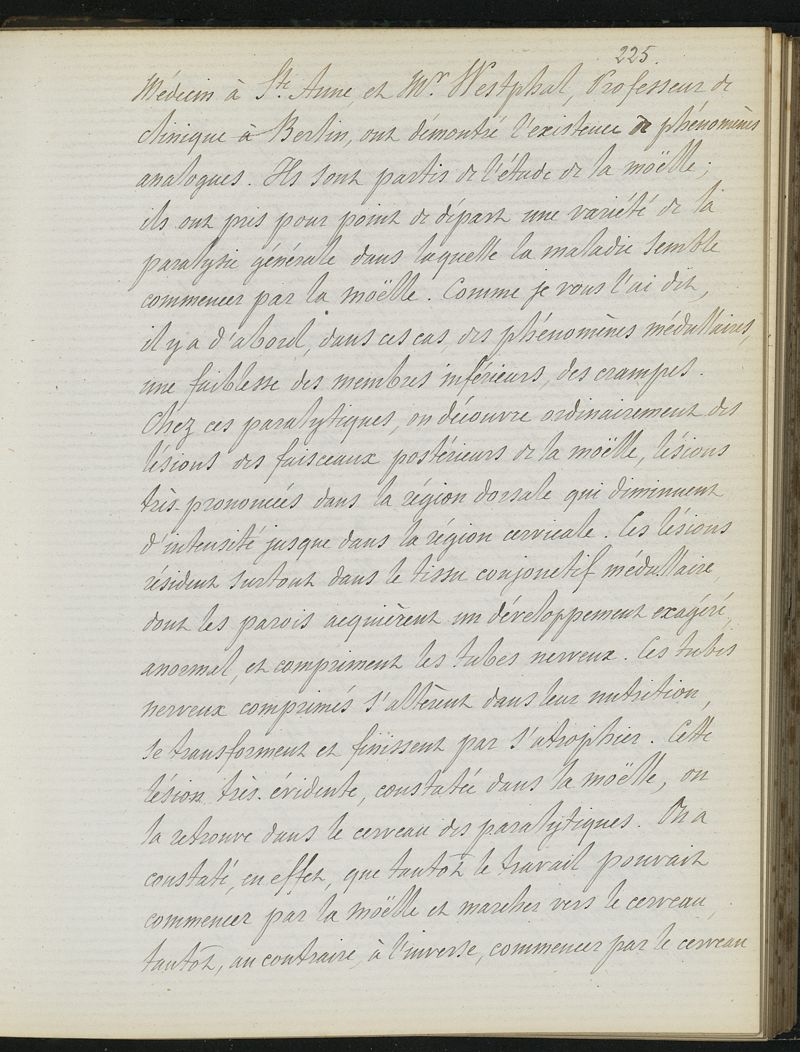 225.
Médecin à Ste Anne, et Mr Westphal, Professeur de
clinique à Berlin, ont démontré l'existence de phénomènes
analogues. Ils sont partis de l'étude de la moëlle ;
ils ont pris pour point de départ une variété de la
paralysie générale dans laquelle la maladie semble
commencer par la moëlle. Comme je vous l'ai dit,
il y a d'abord, dans ces cas, des phénomènes médullaires,
une faiblesse des membres inférieurs, des crampes.
Chez ces paralytiques, on découvre ordinairement des
lésions des faisceaux postérieurs de la moëlle, lésions
très-prononcées dans la région dorsale qui diminuent
d'intensité jusque dans la région cervicale. Ces lésions
résident surtout dans le tissu conjonctif médullaire,
dont les parois acquièrent un développement exagéré,
anormal, et compriment les tubes nerveux. Ces tubes
nerveux comprimés s'altèrent dans leur nutrition,
se transforment et finissent par s'atrophier. Cette
lésion très-évidente, constatée dans la moëlle, on
la retrouve dans le cerveau des paralytiques. On a
constaté, en effet, que tantôt le travail pouvait
commencer par la moëlle et marcher vers le cerveau,
tantôt, au contraire, à l'inverse, commencer par le cerveau